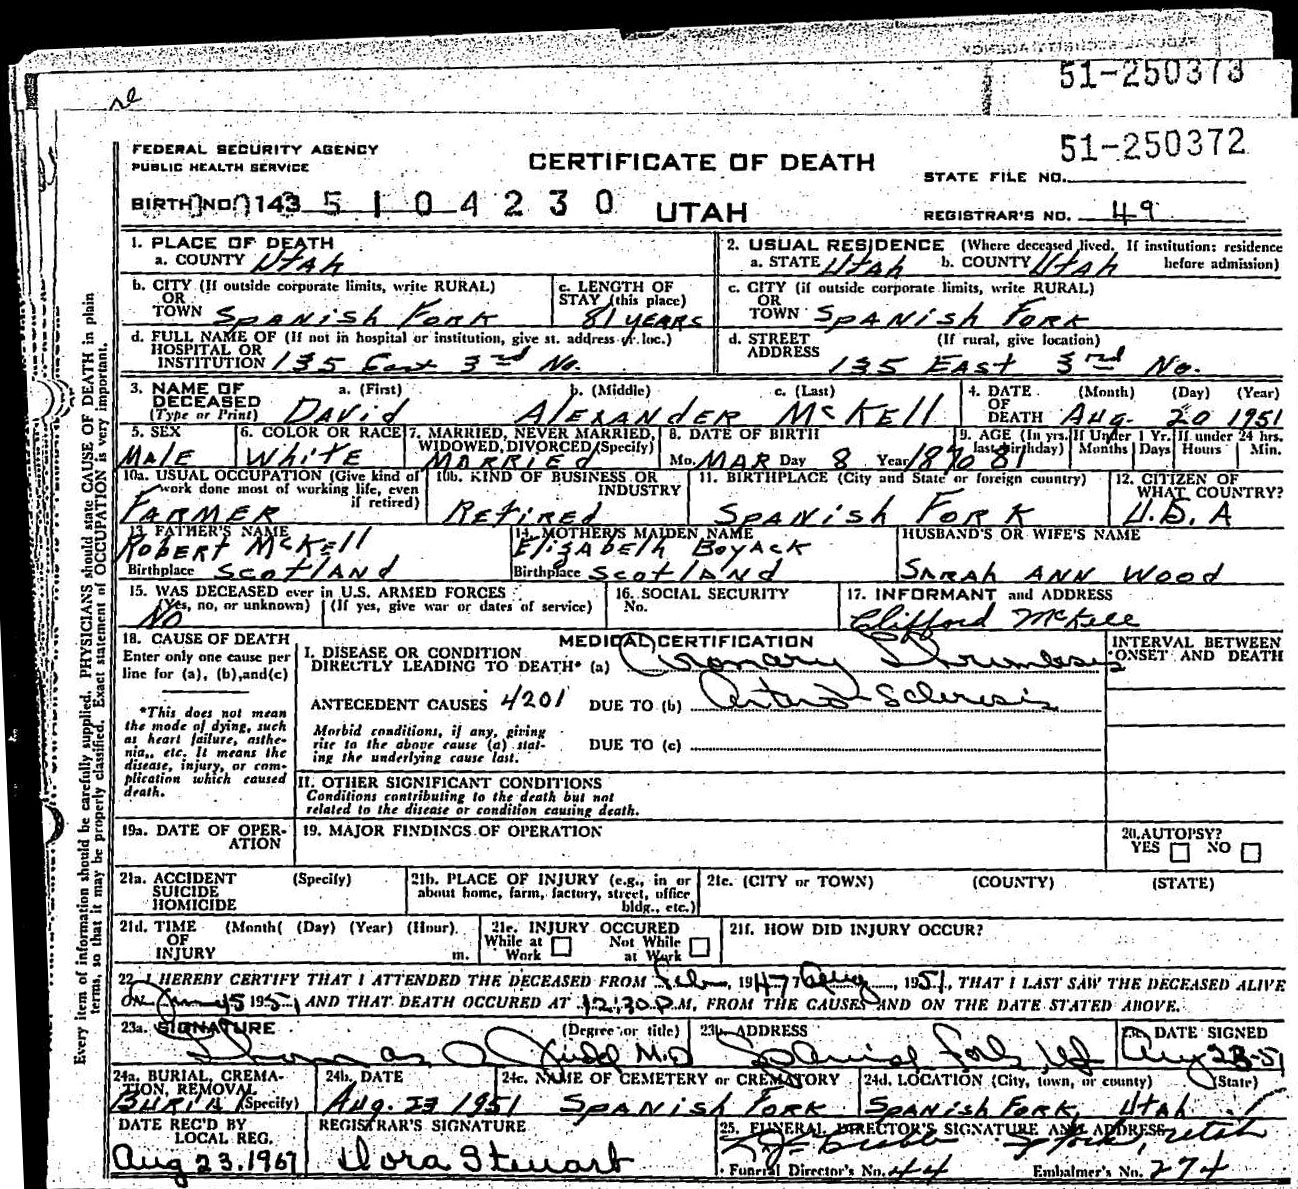 51-250373
51-250372
FEDERAL SECURITY AGENCY
PUBLIC HEALTH SERVICE
CERTIFICATE OF DEATH
STATE FILE NO.
BIRTH NO. 143 5 1 0 4 2 3 0 UTAH REGISTRAR'S NO. 49
1. PLACE OF DEATH
a. COUNTY Utah
2. USUAL RESIDENCE (Where deceased lived. If institution: residence before admission)
a. STATE Utah b. COUNTY Utah
b. CITY (If outside corporate limits, write RURAL)
OR
TOWN Spanish Fork
c. LENGTH OF STAY (this place)
81 years
c. CITY (if outside corporate limits, write RURAL)
OR
TOWN Spanish Fork
d. FULL NAME OF (If not in hospital or institution, give st. address or loc.)
HOSPITAL OR
INSTITUTION 135 East 3rd No.
d. STREET ADDRESS (If rural, give location)
135 East 3rd No.
3. NAME OF DECEASED (Type or Print)
a. (First) b. (Middle) c. (Last)
David Alexander McKell
4. DATE OF DEATH (Month) (Day) (Year)
Aug. 20 1951
5. SEX
Male
6. COLOR OR RACE
White
7. MARRIED, NEVER MARRIED, WIDOWED, DIVORCED (Specify)
Married
8. DATE OF BIRTH
Mo. Mar Day 8 Year 1870
9. AGE (In yrs. last birthday) 81
If Under 1 Yr. Months Days
If under 24 hrs. Hours Min.
10a. USUAL OCCUPATION (Give kind of work done most of working life, even if retired)
Farmer
10b. KIND OF BUSINESS OR INDUSTRY
Retired
11. BIRTHPLACE (City and State or foreign country)
Spanish Fork
12. CITIZEN OF WHAT COUNTRY?
U.S.A
13. FATHER'S NAME
Robert McKell
Birthplace Scotland
14. MOTHER'S MAIDEN NAME
Elizabeth Boyack
Birthplace Scotland
HUSBAND'S OR WIFE'S NAME
Sarah Ann Wood
15. WAS DECEASED ever in U.S. ARMED FORCES
(Yes, no, or unknown) (If yes, give war or dates of service)
No
16. SOCIAL SECURITY No.
17. INFORMANT and ADDRESS
Clifford McKell
18. CAUSE OF DEATH
Enter only one cause per line for (a), (b), and (c)
*This does not mean the mode of dying, such as heart failure, asthenia, etc. It means the disease, injury, or complication which caused death.
MEDICAL CERTIFICATION
I. DISEASE OR CONDITION
DIRECTLY LEADING TO DEATH* (a) Coronary Thrombosis
ANTECEDENT CAUSES 4201 DUE TO (b) Arterio Sclerosis
Morbid conditions, if any, giving rise to the above cause (a) stating the underlying cause last.
DUE TO (c)
II. OTHER SIGNIFICANT CONDITIONS
Conditions contributing to the death but not
related to the disease or condition causing death.
INTERVAL BETWEEN ONSET AND DEATH
19a. DATE OF OPERATION
19. MAJOR FINDINGS OF OPERATION
20. AUTOPSY?
YES NO
21a. ACCIDENT SUICIDE HOMICIDE (Specify)
21b. PLACE OF INJURY (e.g., in or about home, farm, factory, street, office bldg., etc.)
21c. (CITY or TOWN) (COUNTY) (STATE)
21d. TIME OF INJURY (Month( (Day) (Year) (Hour) m.
21e. INJURY OCCURED
While at Work Not While at Work
21f. HOW DID INJURY OCCUR?
22. I HEREBY CERTIFY THAT I ATTENDED THE DECEASED FROM Feb, 1947 Aug, 1951, THAT I LAST SAW THE DECEASED ALIVE
ON 1951 AND THAT DEATH OCCURED AT 12:30 P.M, FROM THE CAUSES AND ON THE DATE STATED ABOVE.
23a. SIGNATURE (Degree or title)
Thomas Judd M.D
23b. ADDRESS
Spanish Fork, Ut
23c. DATE SIGNED
Aug 23-51
24a. BURIAL, CREMATION, REMOVAL (Specify)
Burial
24b. DATE
Aug. 23 1951
24c. NAME OF CEMETERY or CREMATORY
Spanish Fork
24d. LOCATION (City, town, or county) (State)
Spanish Fork, Utah
DATE REC'D BY LOCAL REG.
Aug 23, 1951
REGISTRAR'S SIGNATURE
Dora Stewart
25. FUNERAL DIRECTOR'S SIGNATURE AND ADDRESS
Utah
Funeral Director's No. 44 Embalmer's No. 274
Every item of information should be carefully supplied. PHYSICIANS should state CAUSE OF DEATH in plain
terms, so that it may be properly classified. Exact statement of OCCUPATION is very important.